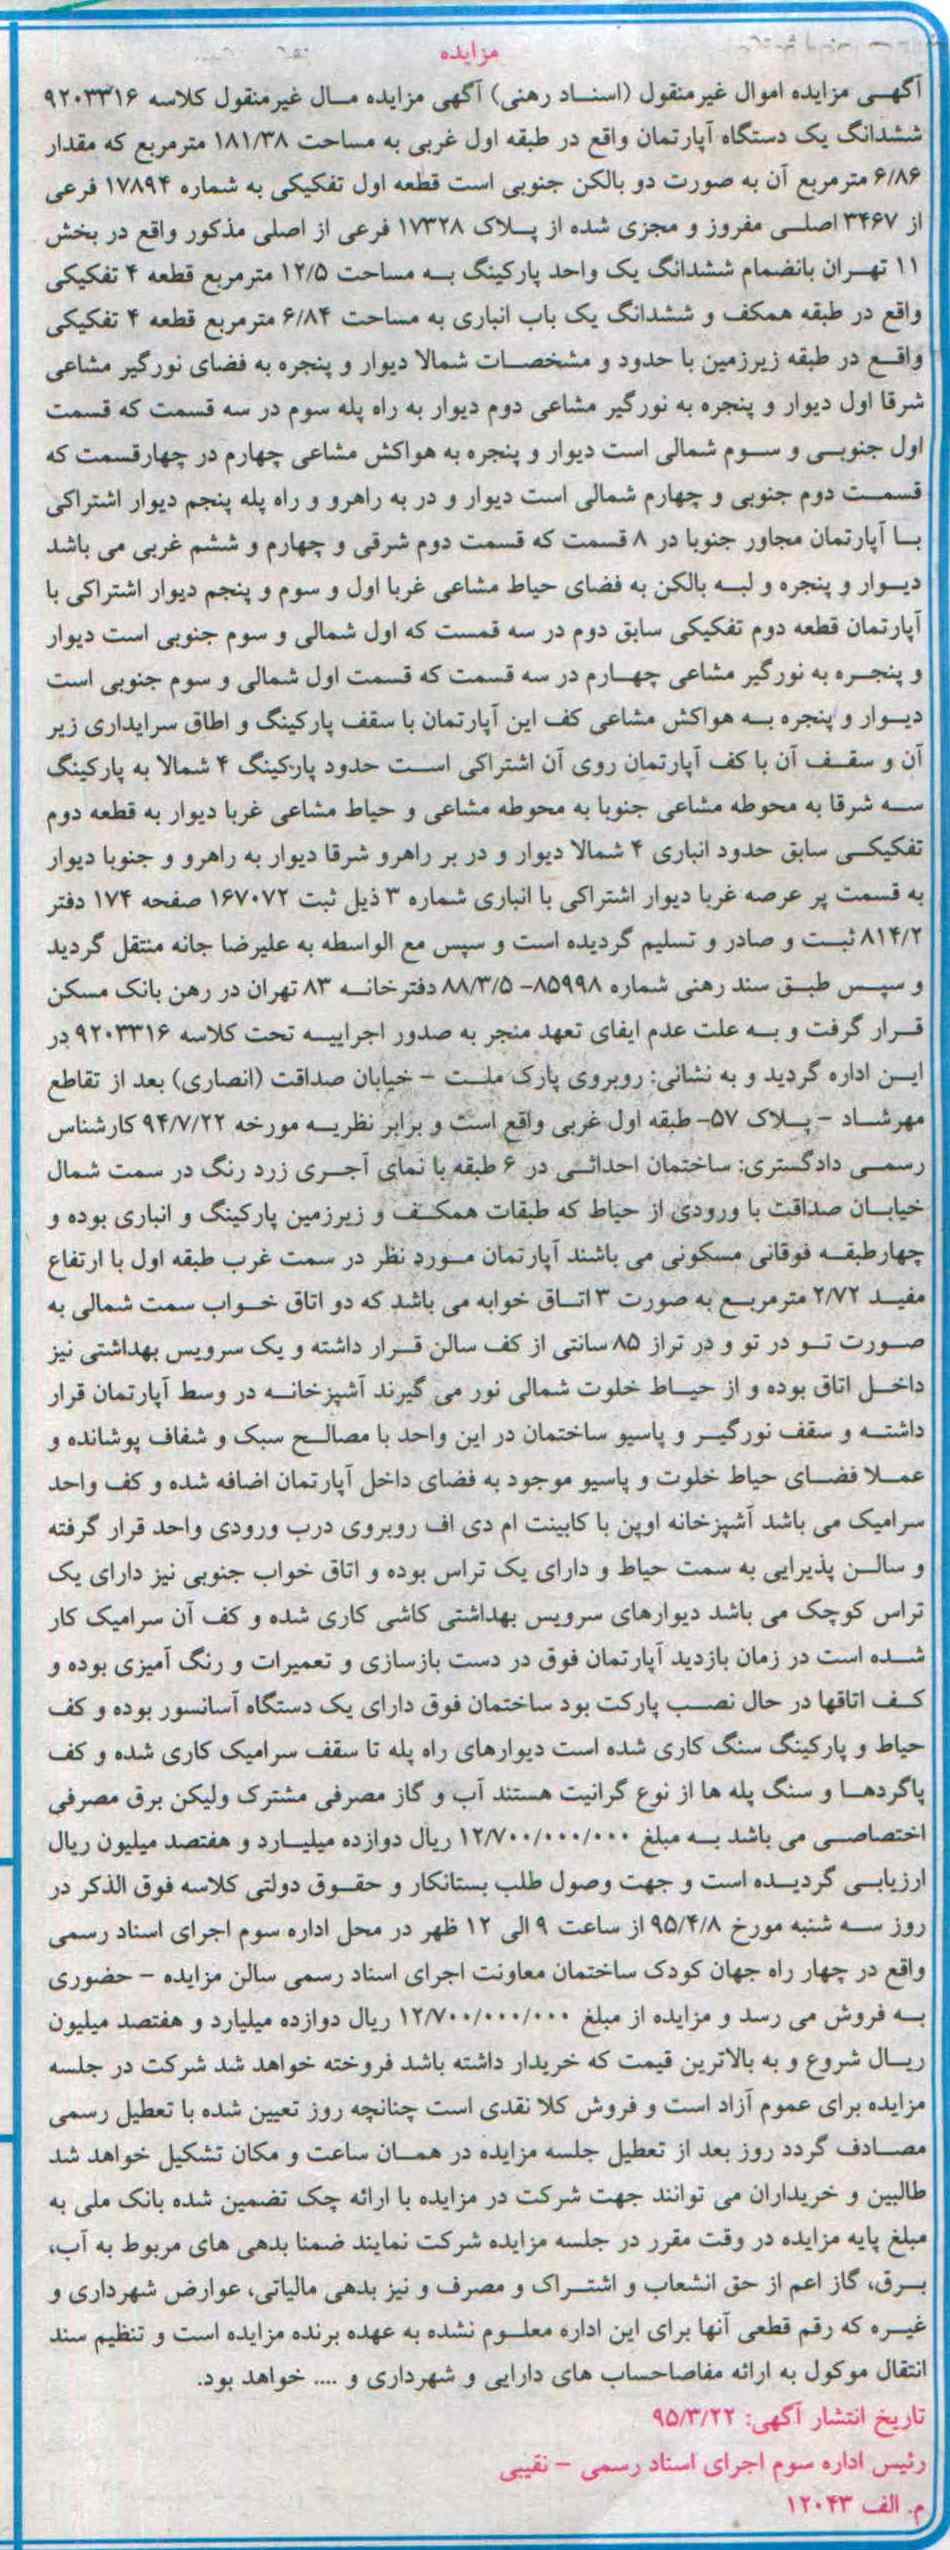 مزایده
آگهی مزایده اموال غیرمنقول (اسناد رهنی) آگهی مزایده مال غیرمنقول کلاسه ۹۲۰۳۳۱۶
ششدانگ یک دستگاه آپارتمان واقع در طبقه اول غربی به مساحت ۱۸۱/۳۸ مترمربع که مقدار
۶/۸۶ مترمربع آن به صورت دو بالکن جنوبی است قطعه اول تفکیکی به شماره ۱۷۸۹۴ فرعی
از ۳۴۶۷ اصلی مفروز و مجزی شده از پلاک ۱۷۳۲۸ فرعی از اصلی مذکور واقع در بخش
۱۱ تهران بانضمام ششدانگ یک واحد پارکینگ به مساحت ۱۲/۵ مترمربع قطعه ۴ تفکیکی
واقع در طبقه همکف و ششدانگ یک باب انباری به مساحت ۶/۸۴ مترمربع قطعه ۴ تفکیکی
واقع در طبقه زیرزمین با حدود و مشخصات شمالا دیوار و پنجره به فضای نورگیر مشاعی
شرقا اول دیوار و پنجره به نورگیر مشاعی دوم دیوار به راه پله سوم در سه قسمت که قسمت
اول جنوبی و سوم شمالی است دیوار و پنجره به هواکش مشاعی چهارم در چهارقسمت که
قسمت دوم جنوبی و چهارم شمالی است دیوار و در به راهرو و راه پله پنجم دیوار اشتراکی
با آپارتمان مجاور جنوبا در ۸ قسمت که قسمت دوم شرقی و چهارم و ششم غربی می باشد
دیوار و پنجره و لبه بالکن به فضای حیاط مشاعی غربا اول و سوم و پنجم دیوار اشتراکی با
آپارتمان قطعه دوم تفکیکی سابق دوم در سه قمست که اول شمالی و سوم جنوبی است دیوار
و پنجره به نورگیر مشاعی چهارم در سه قسمت که قسمت اول شمالی و سوم جنوبی است
دیوار و پنجره به هواکش مشاعی کف این آپارتمان با سقف پارکینگ و اطاق سرایداری زیر
آن و سقف آن با کف آپارتمان روی آن اشتراکی است حدود پارکینگ ۴ شمالا به پارکینگ
سه شرقا به محوطه مشاعی جنوبا به محوطه مشاعی و حیاط مشاعی غربا دیوار به قطعه دوم
تفکیکی سابق حدود انباری ۴ شمالا دیوار و در بر راهرو شرقا دیوار به راهرو و جنوبا دیوار
به قسمت پر عرصه غربا دیوار اشتراکی با انباری شماره ۳ ذیل ثبت ۱۶۷۰۷۲ صفحه ۱۷۴ دفتر
۸۱۴/۲ ثبت و صادر و تسلیم گردیده است و سپس مع الواسطه به علیرضا جانه منتقل گردید
و سپس طبق سند رهنی شماره ۸۵۹۹۸- ۸۸/۳/۵ دفترخانه ۸۳ تهران در رهن بانک مسکن
قرار گرفت و به علت عدم ایفای تعهد منجر به صدور اجراییه تحت کلاسه ۹۲۰۳۳۱۶ در
این اداره گردید و به نشانی: روبروی پارک ملت - خیابان صداقت (انصاری) بعد از تقاطع
مهرشاد - پلاک ۵۷- طبقه اول غربی واقع است و برابر نظریه مورخه ۹۴/۷/۲۲ کارشناس
رسمی دادگستری: ساختمان احداثی در ۶ طبقه با نمای آجری زرد رنگ در سمت شمال
خیابان صداقت با ورودی از حیاط که طبقات همکف و زیرزمین پارکینگ و انباری بوده و
چهارطبقه فوقانی مسکونی می باشند آپارتمان مورد نظر در سمت غرب طبقه اول با ارتفاع
مفید ۲/۷۲ مترمربع به صورت ۳ اتاق خوابه می باشد که دو اتاق خواب سمت شمالی به
صورت تو در تو و در تراز ۸۵ سانتی از کف سالن قرار داشته و یک سرویس بهداشتی نیز
داخل اتاق بوده و از حیاط خلوت شمالی نور می گیرند آشپزخانه در وسط آپارتمان قرار
داشته و سقف نورگیر و پاسیو ساختمان در این واحد با مصالح سبک و شفاف پوشانده و
عملا فضای حیاط خلوت و پاسیو موجود به فضای داخل آپارتمان اضافه شده و کف واحد
سرامیک می باشد آشپزخانه اوپن با کابینت ام دی اف روبروی درب ورودی واحد قرار گرفته
و سالن پذیرایی به سمت حیاط و دارای یک تراس بوده و اتاق خواب جنوبی نیز دارای یک
تراس کوچک می باشد دیوارهای سرویس بهداشتی کاشی کاری شده و کف آن سرامیک کار
شده است در زمان بازدید آپارتمان فوق در دست بازسازی و تعمیرات و رنگ آمیزی بوده و
کف اتاقها در حال نصب پارکت بود ساختمان فوق دارای یک دستگاه آسانسور بوده و کف
حیاط و پارکینگ سنگ کاری شده است دیوارهای راه پله تا سقف سرامیک کاری شده و کف
پاگردها و سنگ پله ها از نوع گرانیت هستند آب و گاز مصرفی مشترک ولیکن برق مصرفی
اختصاصی می باشد به مبلغ ۱۲/۷۰۰/۰۰۰/۰۰۰ ریال دوازده میلیارد و هفتصد میلیون ریال
ارزیابی گردیده است و جهت وصول طلب بستانکار و حقوق دولتی کلاسه فوق الذکر در
روز سه شنبه مورخ ۹۵/۴/۸ از ساعت ۹ الی ۱۲ ظهر در محل اداره سوم اجرای اسناد رسمی
واقع در چهار راه جهان کودک ساختمان معاونت اجرای اسناد رسمی سالن مزایده - حضوری
به فروش می رسد و مزایده از مبلغ ۱۲/۷۰۰/۰۰۰/۰۰۰ ریال دوازده میلیارد و هفتصد میلیون
ریال شروع و به بالاترین قیمت که خریدار داشته باشد فروخته خواهد شد شرکت در جلسه
مزایده برای عموم آزاد است و فروش کلا نقدی است چنانچه روز تعیین شده با تعطیل رسمی
مصادف گردد روز بعد از تعطیل جلسه مزایده در همان ساعت و مکان تشکیل خواهد شد
طالبین و خریداران می توانند جهت شرکت در مزایده با ارائه چک تضمین شده بانک ملی به
مبلغ پایه مزایده در وقت مقرر در جلسه مزایده شرکت نمایند ضمنا بدهی های مربوط به آب،
برق، گاز اعم از حق انشعاب و اشتراک و مصرف و نیز بدهی مالیاتی، عوارض شهرداری و
غیره که رقم قطعی آنها برای این اداره معلوم نشده به عهده برنده مزایده است و تنظیم سند
انتقال موکول به ارائه مفاصاحساب های دارایی و شهرداری و .... خواهد بود.
تاریخ انتشار آگهی: ۹۵/۳/۲۲
رئیس اداره سوم اجرای اسناد رسمی - نقیبی
م. الف ۱۲۰۴۳